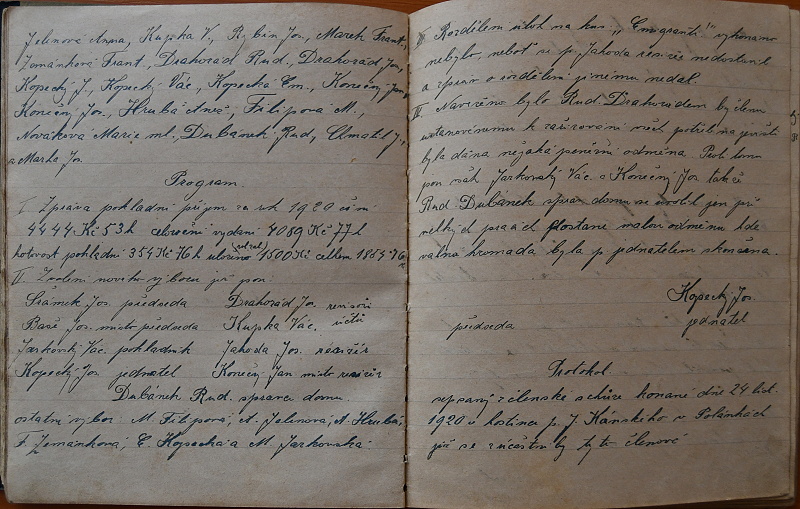 Jelenová Anna, Kupka V., Rybín Jos., Marek Frant.,
Zemánková Frant., Drahorád Rud., Drahorád Jos.,
Kopecký J., Kopecký Vác., Kopecká Em., Konečný Jan,
Konečný Jos., Hrubá Anež., Filipová M.,
Nováková Marie ml., Dubánek Rud.,
a Marha Jos.
Program
I Zpráva pokladní příjm za rok 1920 činí
4444 Kč 53 h celoroční vydání 4089 Kč 77 h
hotovost pokladní 354 Kč 76 h uloženo 1500 Kč celkem 1854.76
II Zvolení nového výboru jsou pan.
Šrámek Jos. předseda Drahorád Jos. revisoři
Bareš Jos. místo předseda Kupka Vác. účtů
Jarkovský Vác. pokladník Jahoda Jos. resižér
Kopecký Jos. jednatel Konečný Jan místo resižér
Dubánek Rud. správce domu
ostatní výbor M. Filipová, A. Jelenová, A. Hrubá,
F. Zemánková, E. Kopecká a M. Jarkovská
Rozdělení úloh na kus „Emigranti" vykonáno
nebylo, neboť se p. Jahoda resižér nedostavil
a zpráv o rozdělení jinému nedal.
III Navrženo bylo Rud. Drahorádem by členu
ustanovenému k zařizování potřeb na jeviště
byla dána nějaká peněžní odměna. Proti tomu
pan Jarkovský Vác. a Konečný Jos. také
Rud. Dubánek správ. domu se uvolil jen při
velkých pracích dostane malou odměnu kde
valná hromada byla p. jednatelem skončena.
Kopecký Jos.
předseda jednatel
Protokol
sepsaný z členské schůze konané dne 24 list.
1920 v hostinci p. J. Kánského v Polánkách
jíž se zúčastnily tyto členové